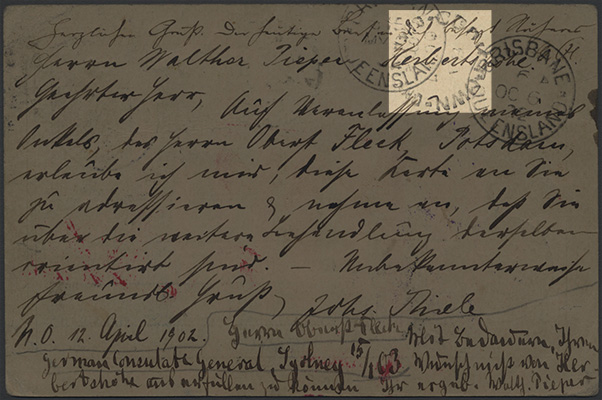 Herzlichen Gruß. Der heutige
Herrn Walther Pieper Herbertshöhe.
Geehrter Herr, Auf Veranlassung meines
Onkels, des Herrn Oberst Fleck, Potsdam,
erlaube ich mir, diese Karte an Sie
zu adressieren & nehme an, daß Sie
über die weitere Behandlung derselben
orientirt sind. — Unbekannterweise
freundl Gruß, Johs. Thiele
N.O. 12. April 1902. Herrn Oberst Fleck
Mit Bedauern, Ihren
German Consulate General, Sydney 15/1 03 Wunsch nicht von Her-
bertshöhe aus erfüllen zu können Ihr ergeb. Walth. Pieper
EENSLAN
BRISBANE
OC 6
QUEENSLAND